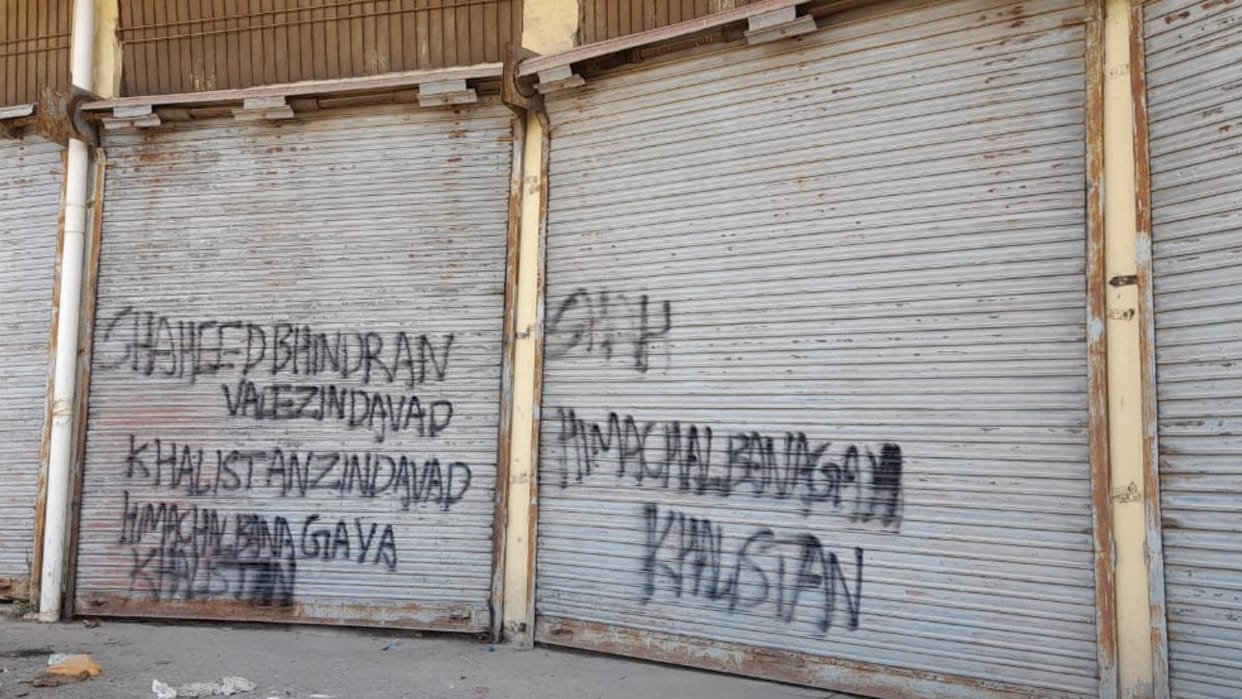 SHAHEEDBHINDRAN
VALEZINDAVAD
KHALISTANZINDAVAD
HIMACHALBANAGAYA
KHALISTAN
HIMACHALBANAGAY
KHALISTAN